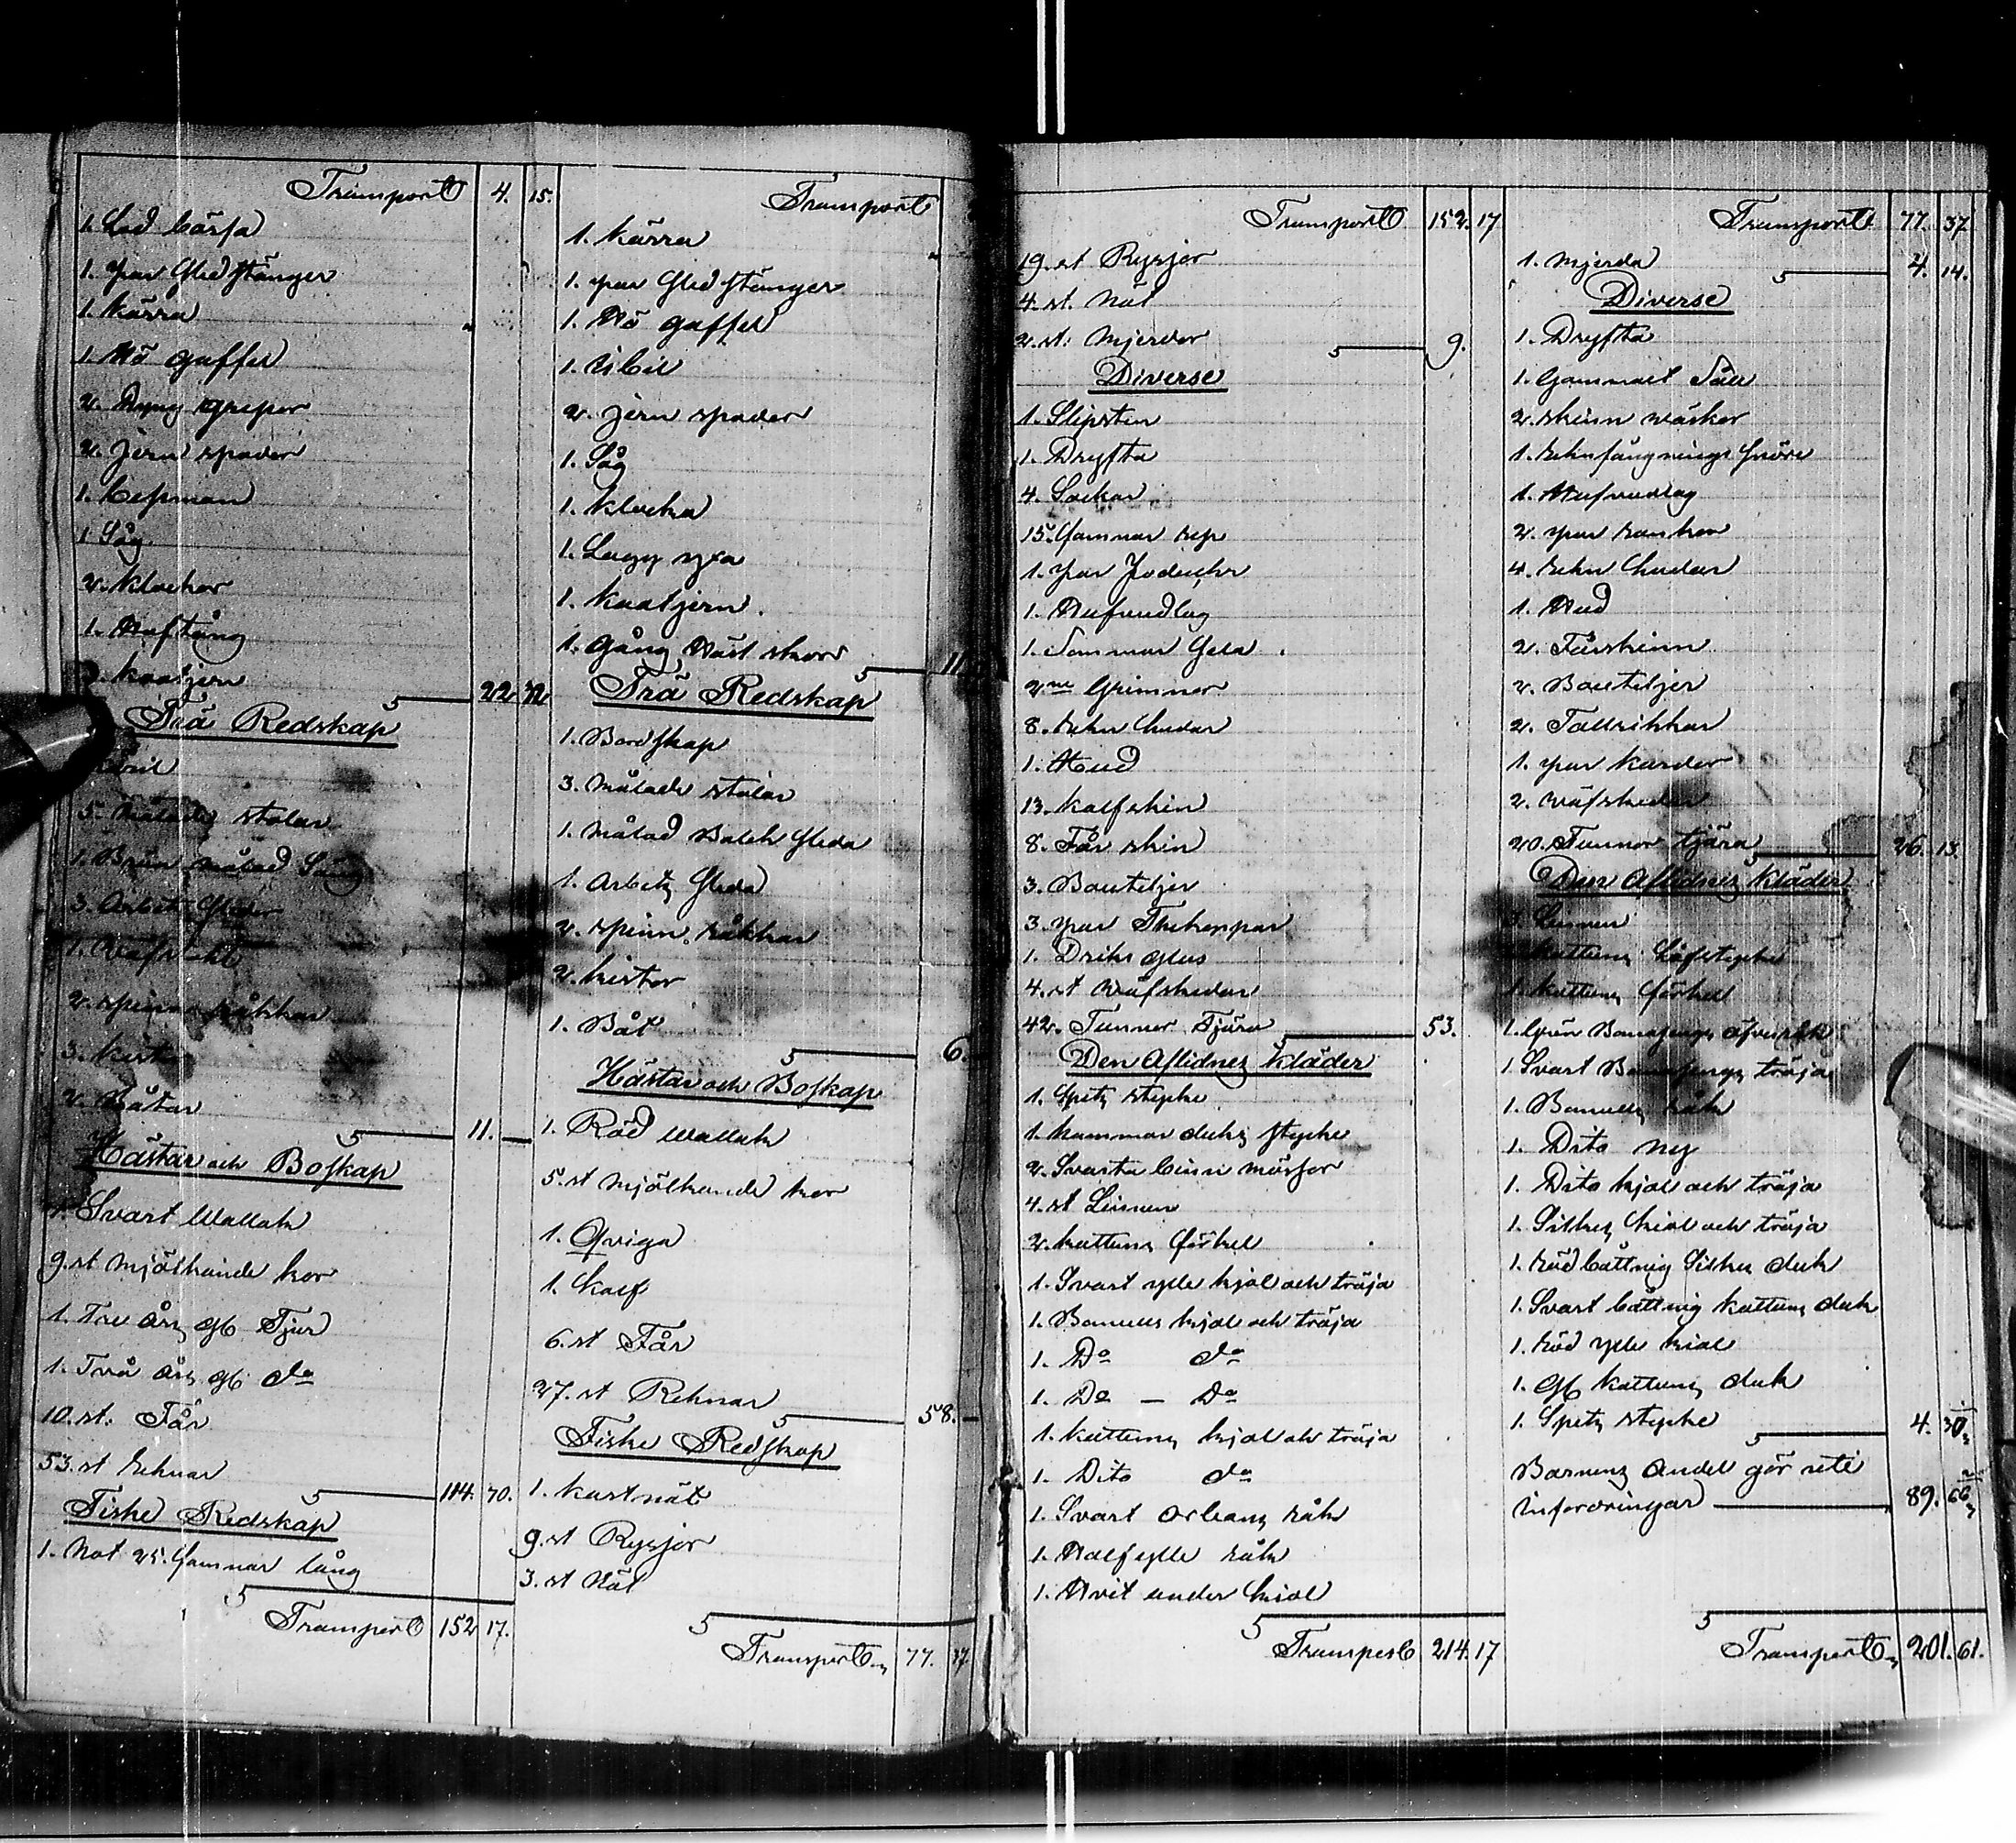 Transport 4. 15.
1. Lod bössa
1. par Sled stänger
1. Kärra
1. Hö gaffel
2. Dyng greper
2. Jern spader
1. Besman
1 Såg
2. Klockor
1. Haftång
Kaatjern 22 72
Trä Redskap
5. Målade stolar
1. Brun målad Säng
3. Arbets Slädor
1.
2. spinn råkkar
3. Kist
2. Båtar 11. —
Hästar och Boskap
1. Svart Wallak
9. st mjölkande kor
1. Tre års gl Tjur
1. Två års gl do
10. st. Får
53. st rehnar 114. 70.
Fiske Redskap
1. Not 25. famnar lång
Transport 152 17.
Transport
1. Kärra
1. par Sled stänger
1. Hö gaffel
1. Isbil
2. Jern spader
1. Såg
1. Klocka
1. Lagg yxa
1. Kaatjern.
1. Gång Häst skor 11
Trä Redskap
1. Bordskap
3. Målade stolar
1. Målad Balck Sleda
1. Arbets Sleda
2. spinn råkkar
2. kistor
1. Båt 6.
Hästar och Boskap
1. Röd Wallak
5. st mjölkande kor
1. Qviga
1. Kalf
6. st Får
27. st Rehnar 58. —
Fiske Redskap
1. Kastnät
9. st Rysjor
3. st Nät
Transport 77. 37.
Transport 152. 17
19. st Rysjor
4. st. Nät
2. st. Mjerdor 9.
Diverse
1. Slipsten
1. Dryfta
4. Säckar
15. famnar rep
1. par
1. Hufvudlag
1. Sommar Gela
2ne Grimmor
8. rehn hudar
1. Hud
13. kalfskin
8. Får skin
3. Bouteljer
3. par Thekoppar
1. Driks glas
4. st wäfskedar
42. Tunnor Tjära 53.
Den Aflidnes Kläder
1. Spets stycke
1. kammar duks stycke
2. Svarta bind mössor
4. st Linnen
2. kattuns förkel
1. Svart ylle kjol och tröja
1. Bomulls kjol och tröja
1. Do do
1. Do — Do
1. kattuns kjol och tröja
1. Dito do
1. Svart Orleans råk
1. Halfylle råk
1. Hvit under kjol
Transport 214. 17
Transport 77. 37
1. Mjerda 4. 14.
Diverse
1. Dryfta
1. Gammalt Såll
2. skinn wäskor
1. rehnfångnings snöre
1. Hufvudlag
2. par rankor
4. rehn hudar
1. Hud
2. Fårskinn
2. Bouteljer
2. Tallrikkar
1. par kardor
2. wäfskedar
20. Tunnor tjära 26. 13.
Den Aflidnes Kläder
Linnen
kattuns lifstycke
1. kattuns förkel
1. Grön Bomasengs öfverråk
1. Svart Bomasengs tröja
1. Bomulls råk
1. Dito ny
1. Dito kjol och tröja
1. Silkes kjol och tröja
1. röd båttnig Silkes duk
1. Svart båttnig kattuns duk
1. röd ylle kjol
1. gl kattuns duk
1. Spets stycke 4. 30
Barnens Andel gör uti
infordringar 89. 66
Transport 201. 61.